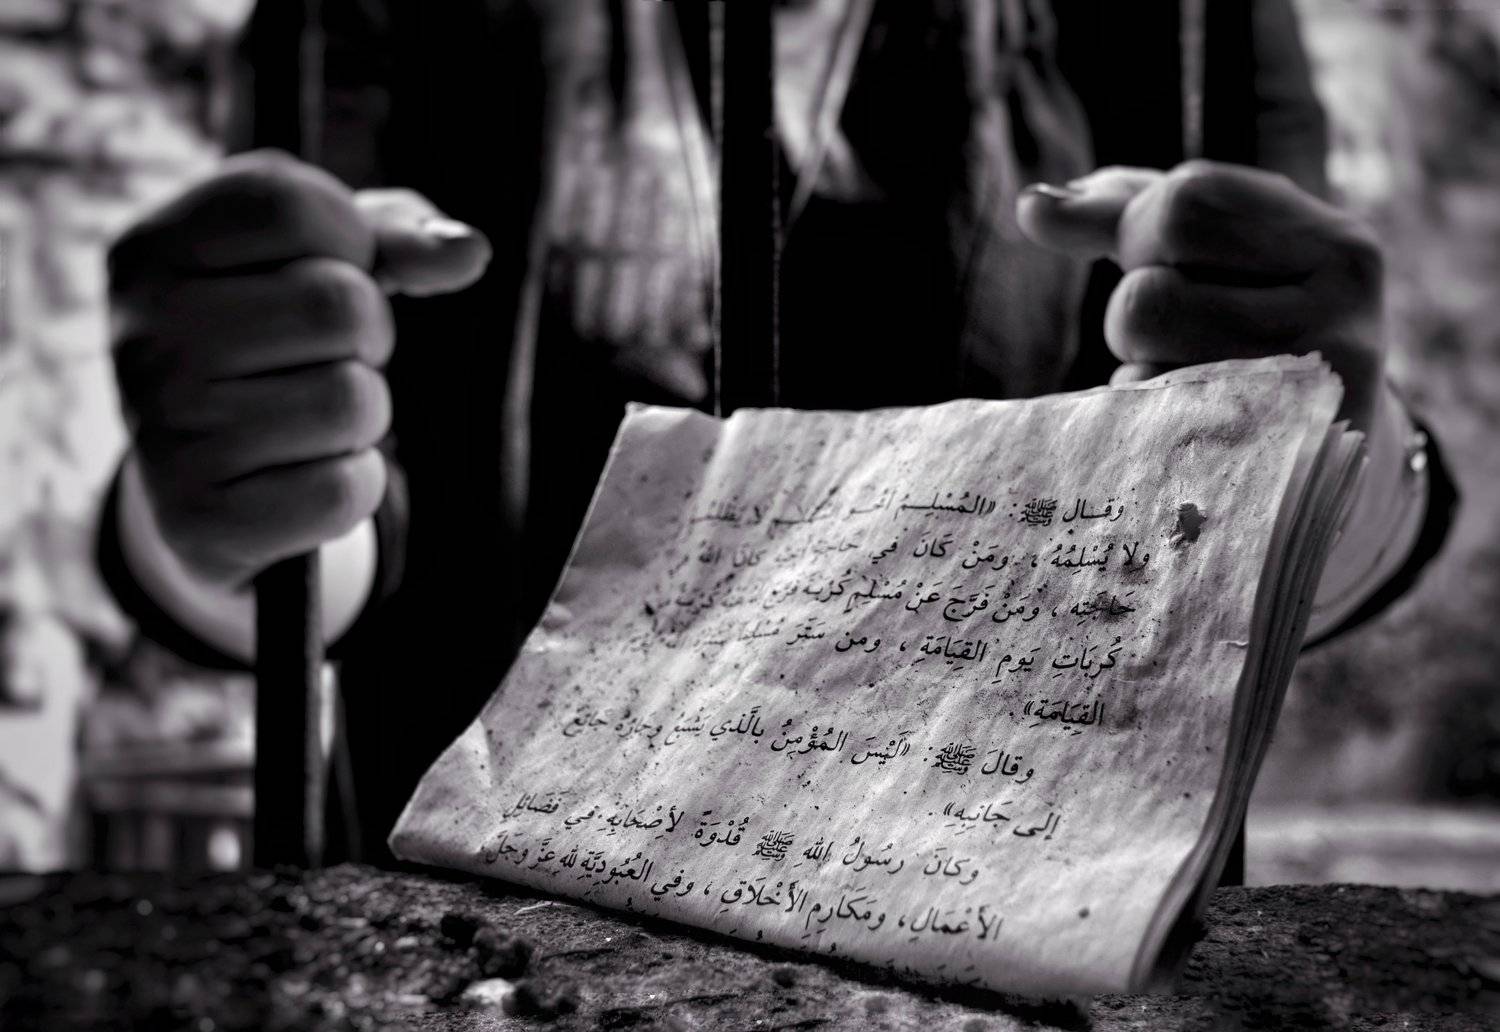 وقـال ﷺ: «المُسْلِـمُ أخـو المُسْلِـمِ لا يَظْلِمُـ
ولا يُسْلِمُهُ، ومَنْ كَانَ في حَاجَةِ أخيه كانَ اللهُ
حَاجَتِهِ، ومَنْ فَرَّجَ عَنْ مُسْلِمٍ كُرْبَة فَرَّجَ
كُرَبَاتِ يَومِ القِيَامَةِ، ومن سَتَر مُسْلِمًا
القِيَامَةِ».
وقالَ ﷺ: «لَيْسَ المُؤْمِنُ بالَّذي يَشْبَعُ وجارُهُ جَائِعٌ
إلى جَانِبِهِ».
وكانَ رسُولُ الله ﷺ قُدْوَةً لأصْحَابِهِ في فَضَائِلِ
الأعْمَالِ، ومَكَارِمِ الأَخْلَاقِ، وفي العُبُودِيَّةِ للهِ عَزَّ وجَلَّ.